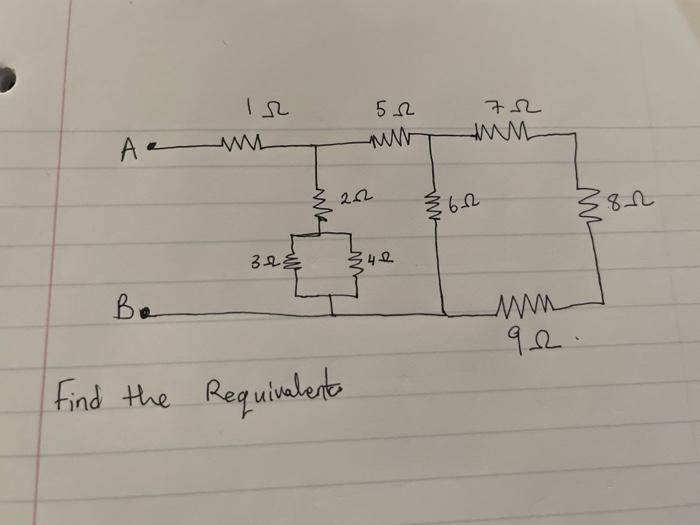 1Ω 5Ω 7Ω
A
2Ω 6Ω 8Ω
3Ω 4Ω
B
9Ω.
Find the Requivalent